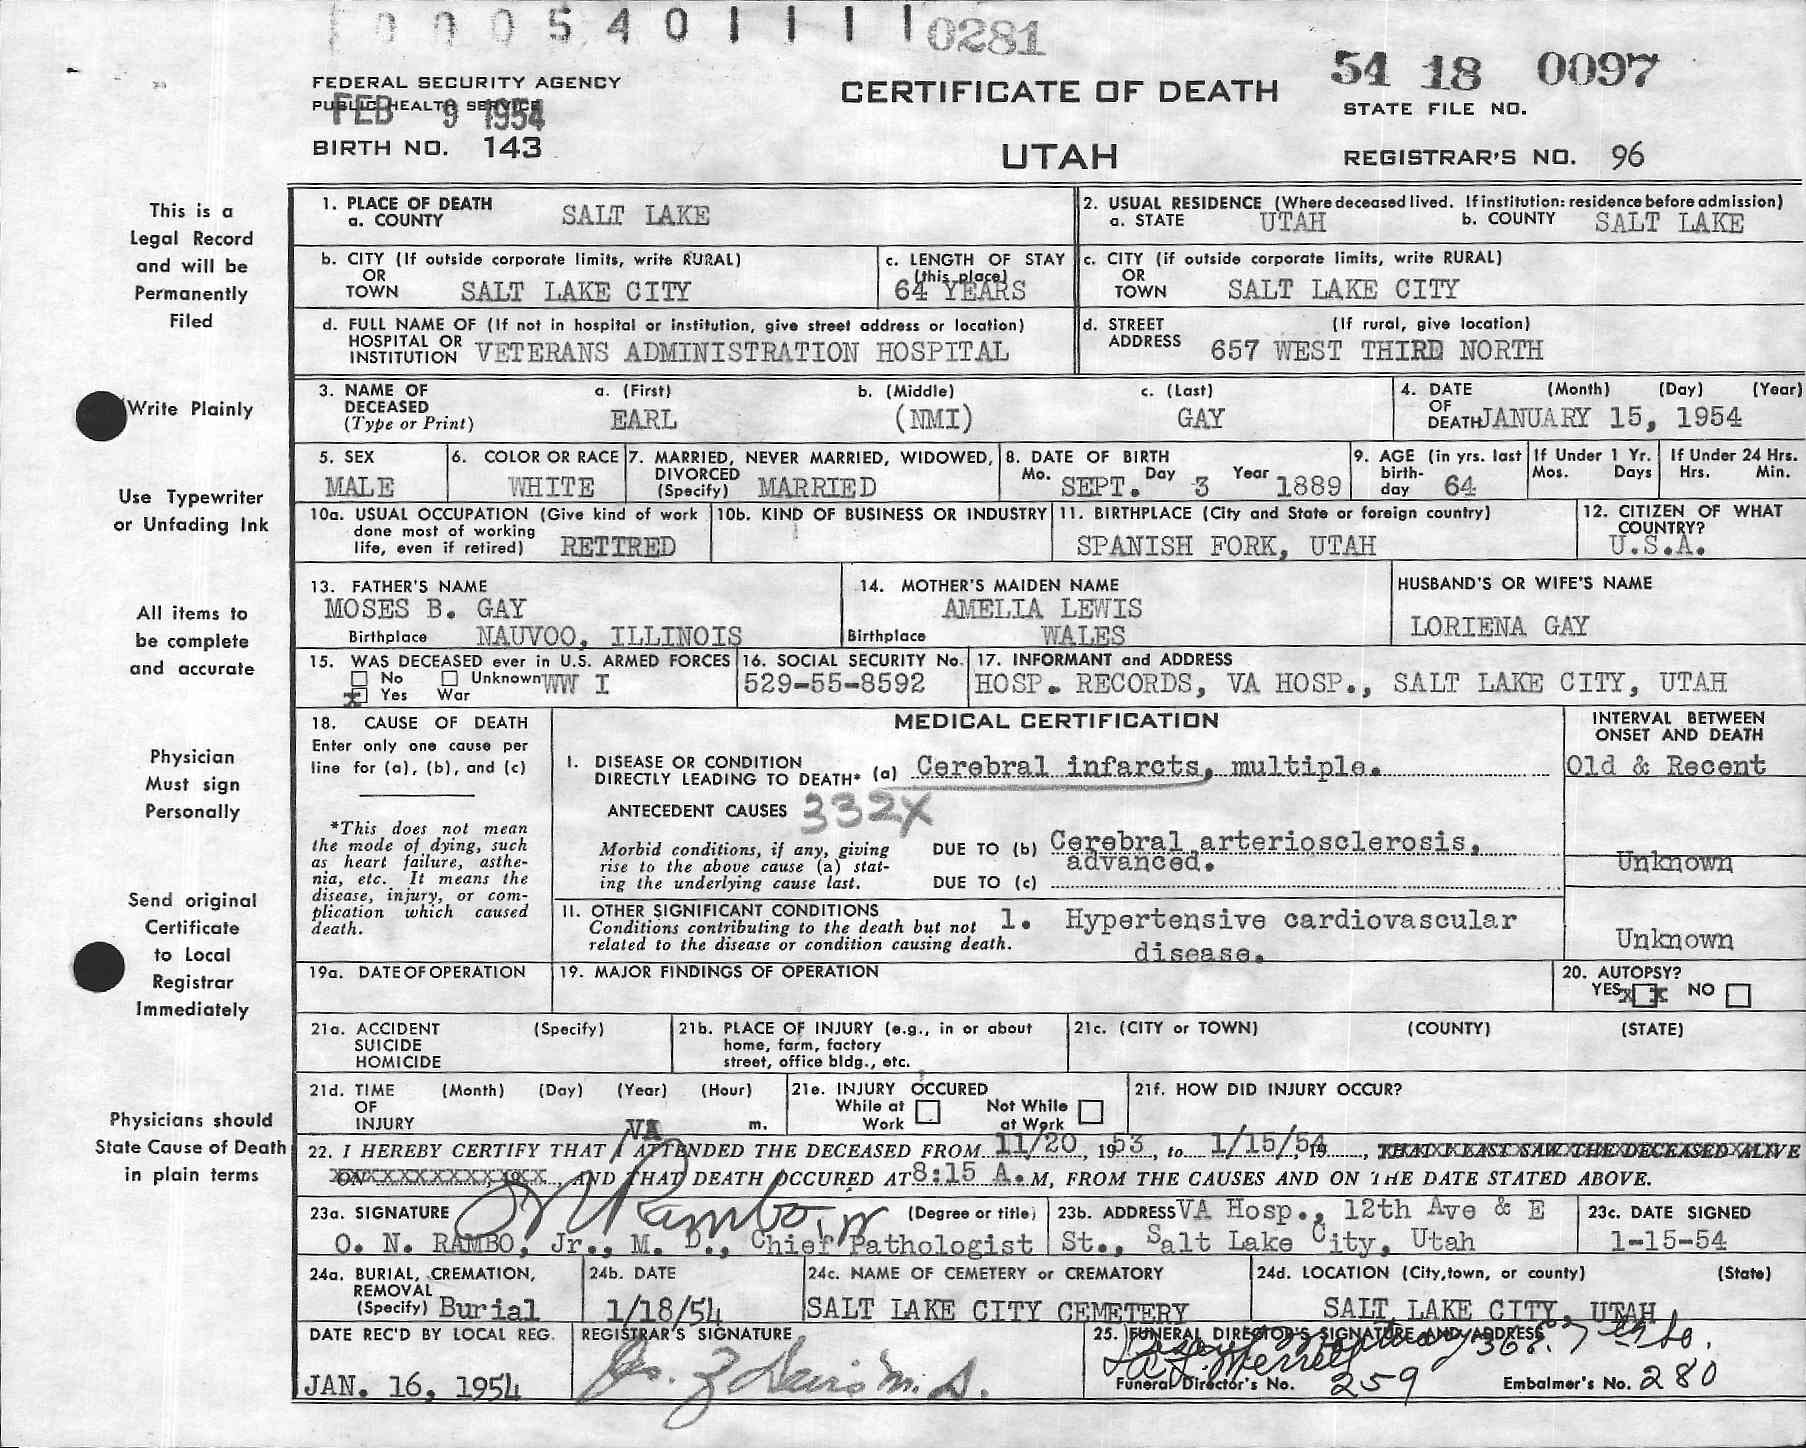 0 0 0 5 4 0 1 1 1 1 0281
54 18 0097
FEDERAL SECURITY AGENCY
PUBLIC HEALTH SERVICE
FEB 9 1954
BIRTH NO. 143
CERTIFICATE OF DEATH
UTAH
STATE FILE NO.
REGISTRAR'S NO. 96
This is a
Legal Record
and will be
Permanently
Filed
Write Plainly
Use Typewriter
or Unfading Ink
All items to
be complete
and accurate
Physician
Must sign
Personally
Send original
Certificate
to Local
Registrar
Immediately
Physicians should
State Cause of Death
in plain terms
1. PLACE OF DEATH
a. COUNTY SALT LAKE
2. USUAL RESIDENCE (Where deceased lived. If institution: residence before admission)
a. STATE UTAH b. COUNTY SALT LAKE
b. CITY (If outside corporate limits, write RURAL)
OR
TOWN SALT LAKE CITY
c. LENGTH OF STAY
(this place)
64 YEARS
c. CITY (if outside corporate limits, write RURAL)
OR
TOWN SALT LAKE CITY
d. FULL NAME OF (If not in hospital or institution, give street address or location)
HOSPITAL OR
INSTITUTION VETERANS ADMINISTRATION HOSPITAL
d. STREET (If rural, give location)
ADDRESS 657 WEST THIRD NORTH
3. NAME OF a. (First) b. (Middle) c. (Last)
DECEASED
(Type or Print) EARL (NMI) GAY
4. DATE (Month) (Day) (Year)
OF
DEATH JANUARY 15, 1954
5. SEX
MALE
6. COLOR OR RACE
WHITE
7. MARRIED, NEVER MARRIED, WIDOWED,
DIVORCED
(Specify) MARRIED
8. DATE OF BIRTH
Mo. SEPT. Day 3 Year 1889
9. AGE (in yrs. last
birth-
day 64
If Under 1 Yr.
Mos. Days
If Under 24 Hrs.
Hrs. Min.
10a. USUAL OCCUPATION (Give kind of work
done most of working
life, even if retired) RETIRED
10b. KIND OF BUSINESS OR INDUSTRY
11. BIRTHPLACE (City and State or foreign country)
SPANISH FORK, UTAH
12. CITIZEN OF WHAT
COUNTRY?
U.S.A.
13. FATHER'S NAME
MOSES B. GAY
Birthplace NAUVOO, ILLINOIS
14. MOTHER'S MAIDEN NAME
AMELIA LEWIS
Birthplace WALES
HUSBAND'S OR WIFE'S NAME
LORIENA GAY
15. WAS DECEASED ever in U.S. ARMED FORCES
No Unknown WW I
x Yes War
16. SOCIAL SECURITY No.
529-55-8592
17. INFORMANT and ADDRESS
HOSP. RECORDS, VA HOSP., SALT LAKE CITY, UTAH
18. CAUSE OF DEATH
Enter only one cause per
line for (a), (b), and (c)
*This does not mean
the mode of dying, such
as heart failure, asthe-
nia, etc. It means the
disease, injury, or com-
plication which caused
death.
MEDICAL CERTIFICATION
INTERVAL BETWEEN
ONSET AND DEATH
I. DISEASE OR CONDITION
DIRECTLY LEADING TO DEATH* (a) Cerebral infarcts, multiple. Old & Recent
ANTECEDENT CAUSES 332X
Morbid conditions, if any, giving
rise to the above cause (a) stat-
ing the underlying cause last.
DUE TO (b) Cerebral arteriosclerosis,
advanced. Unknown
DUE TO (c)
II. OTHER SIGNIFICANT CONDITIONS
Conditions contributing to the death but not
related to the disease or condition causing death.
1. Hypertensive cardiovascular
disease. Unknown
19a. DATE OF OPERATION
19. MAJOR FINDINGS OF OPERATION
20. AUTOPSY?
YES x x NO
21a. ACCIDENT (Specify)
SUICIDE
HOMICIDE
21b. PLACE OF INJURY (e.g., in or about
home, farm, factory
street, office bldg., etc.
21c. (CITY or TOWN) (COUNTY) (STATE)
21d. TIME (Month) (Day) (Year) (Hour)
OF
INJURY m.
21e. INJURY OCCURED
While at Work Not While at Work
21f. HOW DID INJURY OCCUR?
VA
22. I HEREBY CERTIFY THAT I ATTENDED THE DECEASED FROM 11/20, 1953, to 1/15/54 19, THAT I LAST SAW THE DECEASED ALIVE
ON xxxxxxxxx 19xx, AND THAT DEATH OCCURED AT 8:15 A.M, FROM THE CAUSES AND ON THE DATE STATED ABOVE.
23a. SIGNATURE O N Rambo, Jr (Degree or title)
O. N. RAMBO, Jr., M. D., Chief Pathologist
23b. ADDRESS VA Hosp., 12th Ave & E
St., Salt Lake City, Utah
23c. DATE SIGNED
1-15-54
24a. BURIAL, CREMATION,
REMOVAL
(Specify) Burial
24b. DATE
1/18/54
24c. NAME OF CEMETERY or CREMATORY
SALT LAKE CITY CEMETERY
24d. LOCATION (City, town, or county) (State)
SALT LAKE CITY, UTAH
DATE REC'D BY LOCAL REG.
JAN. 16, 1954
REGISTRAR'S SIGNATURE
Jos. Z Davis M.D.
25. FUNERAL DIRECTOR'S SIGNATURE AND ADDRESS
Funeral Director's No. 259 Embalmer's No. 280